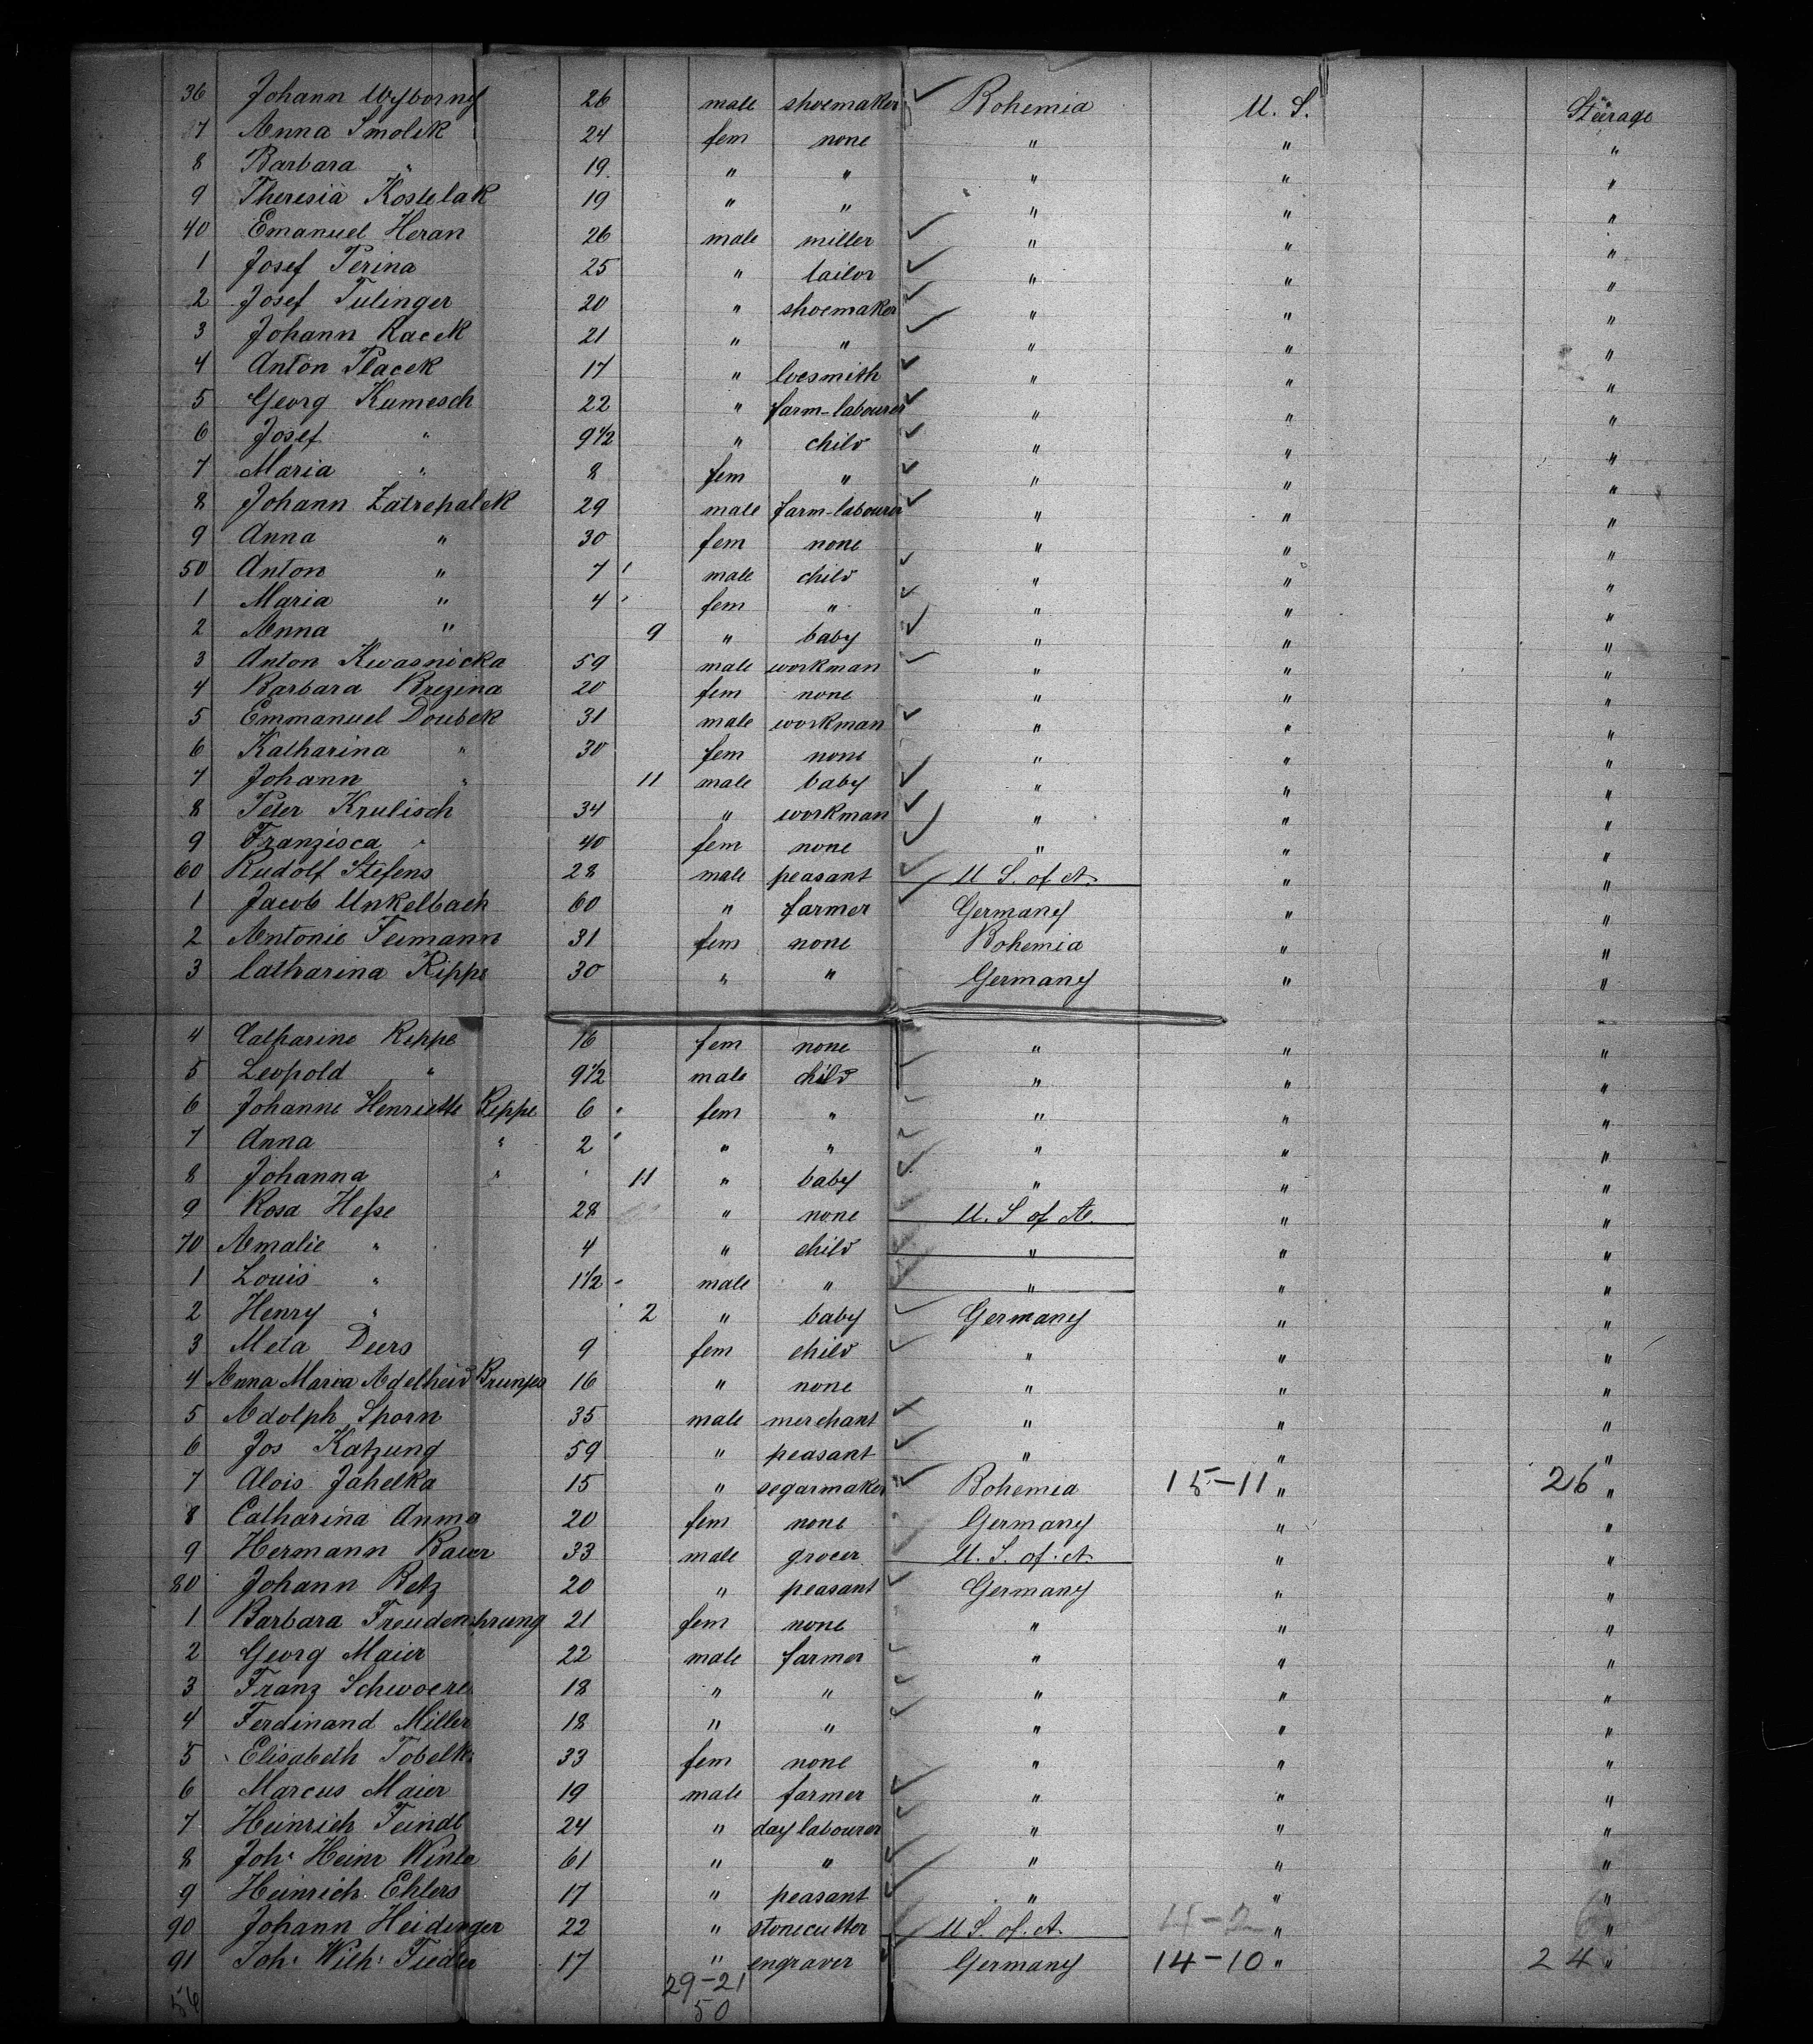 36 Johann Wyborny 26 male shoemaker Bohemia U. S. Stürage
37 Anna Smolek 24 fem none " " "
8 Barbara " 19 " " " " "
9 Theresia Kostelak 19 " " " " "
40 Emanuel Heran 26 male miller " " "
1 Josef Perina 25 " tailor " " "
2 Josef Tulinger 20 " shoemaker " " "
3 Johann Racek 21 " " " " "
4 Anton Placek 17 " locsmith " " "
5 Georg Kumesch 22 " farm-labourer " " "
6 Josef " 9 1/2 " child " " "
7 Maria " 8 fem " " " "
8 Johann Zatrepalek 29 male farm-labourer " " "
9 Anna " 30 fem none " " "
50 Anton " 7 male child " " "
1 Maria " 4 fem " " " "
2 Anna " 9 " baby " " "
3 Anton Kwasnicka 59 male workman " " "
4 Barbara Brezina 20 fem none " " "
5 Emmanuel Doubek 31 male workman " " "
6 Katharina " 30 fem none " " "
7 Johann " 11 male baby " " "
8 Peter Krulisch 34 " workman " " "
9 Franzisca " 40 fem none " " "
60 Rudolf Stefens 28 male peasant U S. of A. " "
1 Jacob Unkelbach 60 " farmer Germany " "
2 Antonie Feimann 31 fem none Bohemia " "
3 Catharina Rippe 30 " " Germany " "
4 Catharine Rippe 16 fem none " " "
5 Leopold " 9 1/2 male child " " "
6 Johanne Henriette Rippe 6 fem " " " "
7 Anna " 2 " " " " "
8 Johanna " 11 " baby " " "
9 Rosa Hesse 28 " none U. S of A. " "
70 Amalie " 4 " child " " "
1 Louis " 1 1/2 male " " " "
2 Henry " 2 " baby Germany " "
3 Meta Deers 9 fem child " " "
4 Anna Maria Adelheid Brunjes 16 " none " " "
5 Adolph Sporn 35 male merchant " " "
6 Jos Katzung 59 " peasant " " "
7 Alois Jahelka 15 " segarmaker Bohemia 15-11 " 26 "
8 Catharina 20 fem none Germany " "
9 Hermann Bauer 33 male grocer U. S. of. A. " "
80 Johann Betz 20 " peasant Germany " "
1 Barbara 21 fem none " " "
2 Georg Maier 22 male farmer " " "
3 Franz Schwoerer 18 " " " " "
4 Ferdinand Miller 18 " " " " "
5 Elisabeth 33 fem none " " "
6 Marcus Maier 19 male farmer " " "
7 Heinrich Feindt 24 " day labourer " " "
8 Joh. Heinr 61 " " " " "
9 Heinrich Ehlers 17 " peasant " " "
90 Johann Heidinger 22 " stonecutter U S. of. A. " "
91 Joh. Wilh. Fiedler 17 " engraver Germany 14-10 " 24 "
29-21
56 50